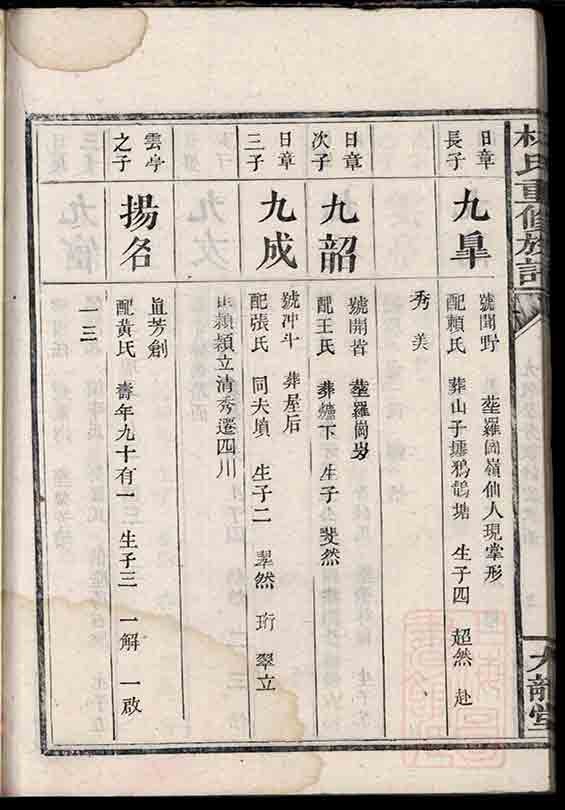 林氏重修族譜
九龍堂
日章
長子
九臯
號聞野 塋羅崗嶺仙人現掌形
配賴氏 葬山子壚鴉鵲塘 生子四 超然 赴
秀美
日章
次子
九韶
號開省 塋羅崗岃
配王氏 葬爐下 生子 斐然
日章
三子
九成
號沖斗 葬屋后
配張氏 同夫墳 生子二 翠然 珩 翠立
穎立清秀遷四川
雲亭
之子
揚名
直芳創
配黃氏 壽年九十有一 生子三 一解 一啟
一三